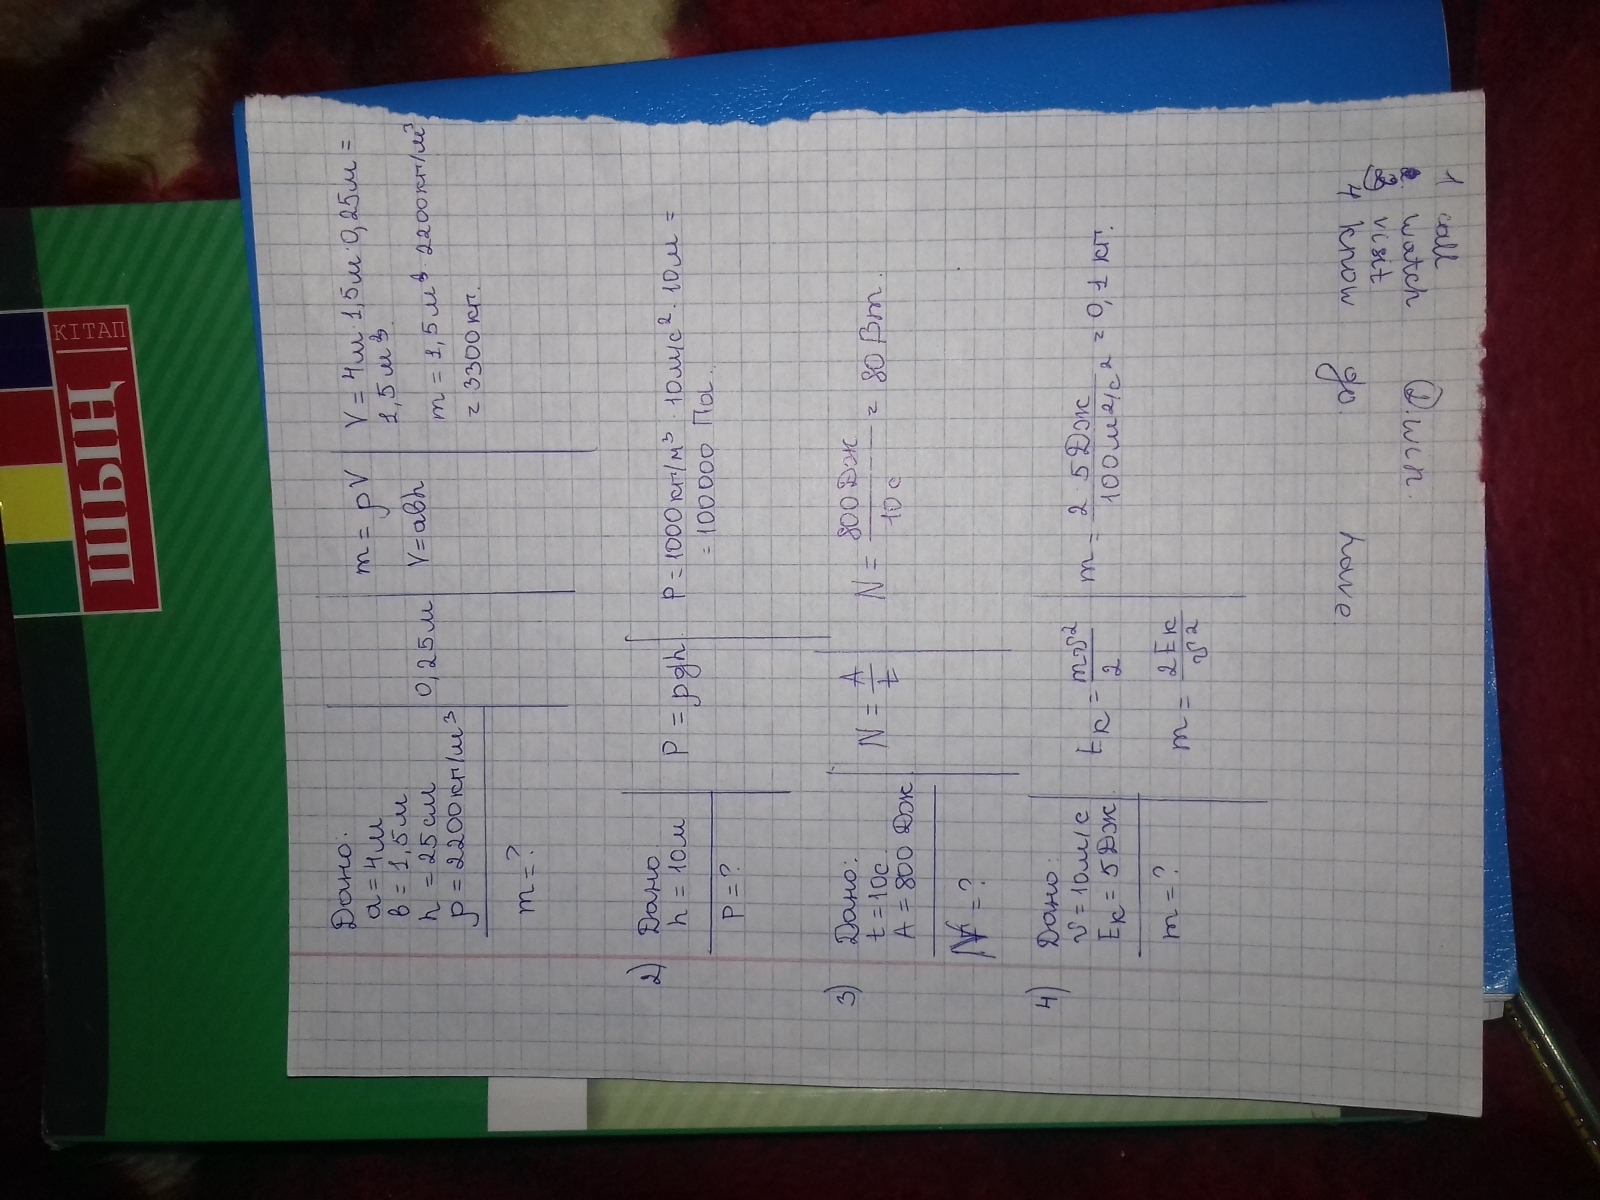 Дано:
a = 4м
в = 1,5м
h = 25см
ρ = 2200кг/м³
m = ?
0,25м
m = ρV
V = aвh
V = 4м 1,5м · 0,25м =
1,5м³
m = 1,5м³ · 2200кг/м³
= 3300кг.
2) Дано
h = 10м
P = ?
P = ρgh
P = 1000кг/м³ · 10м/с² · 10м =
= 100000 Па.
3) Дано:
t = 10с
A = 800 Дж
N = ?
N = A/t
N = 800Дж/10с = 80 Вт.
4) Дано:
v = 10м/с
Eк = 5Дж
m = ?
Eк = mv²/2
m = 2Eк/v²
m = 2 · 5Дж/100м²/с² = 0,1 кг.
1 call
2 watch
3 visit
4 know
① wich.
go
have
ШЫҢ
КІТАП